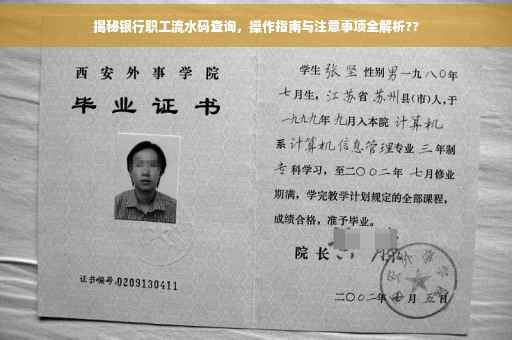 揭秘银行职工流水码查询，操作指南与注意事项全解析??
西安外事学院
毕业证书
证书编号:0209130411
学生 张坚 性别 男 一九八〇年
七月生，江苏省 苏州 县(市)人，于
一九九九年 九月入本院 计算机
系 计算机信息管理专业 三 年制
专 科学习，至二〇〇二年 七月修业
期满，学完教学计划规定的全部课程，
成绩合格，准予毕业。
院长
二〇〇二年 七 月 五 日